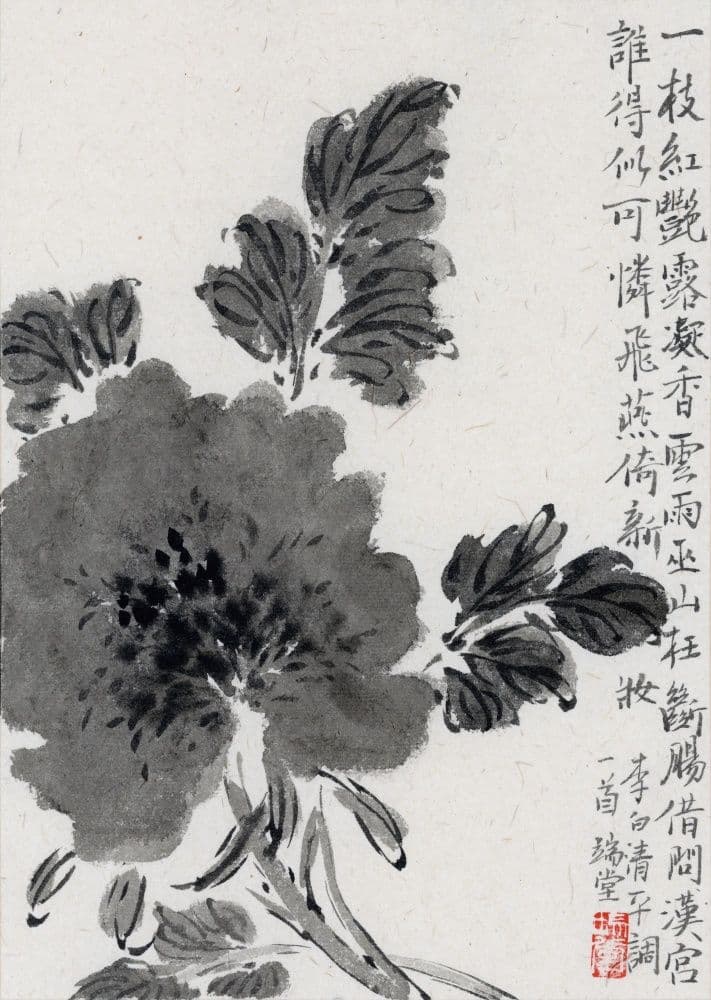 一枝紅艷露凝香雲雨巫山枉斷腸借問漢宮
誰得似可憐飛燕倚新妝
李白清平調
一首端堂